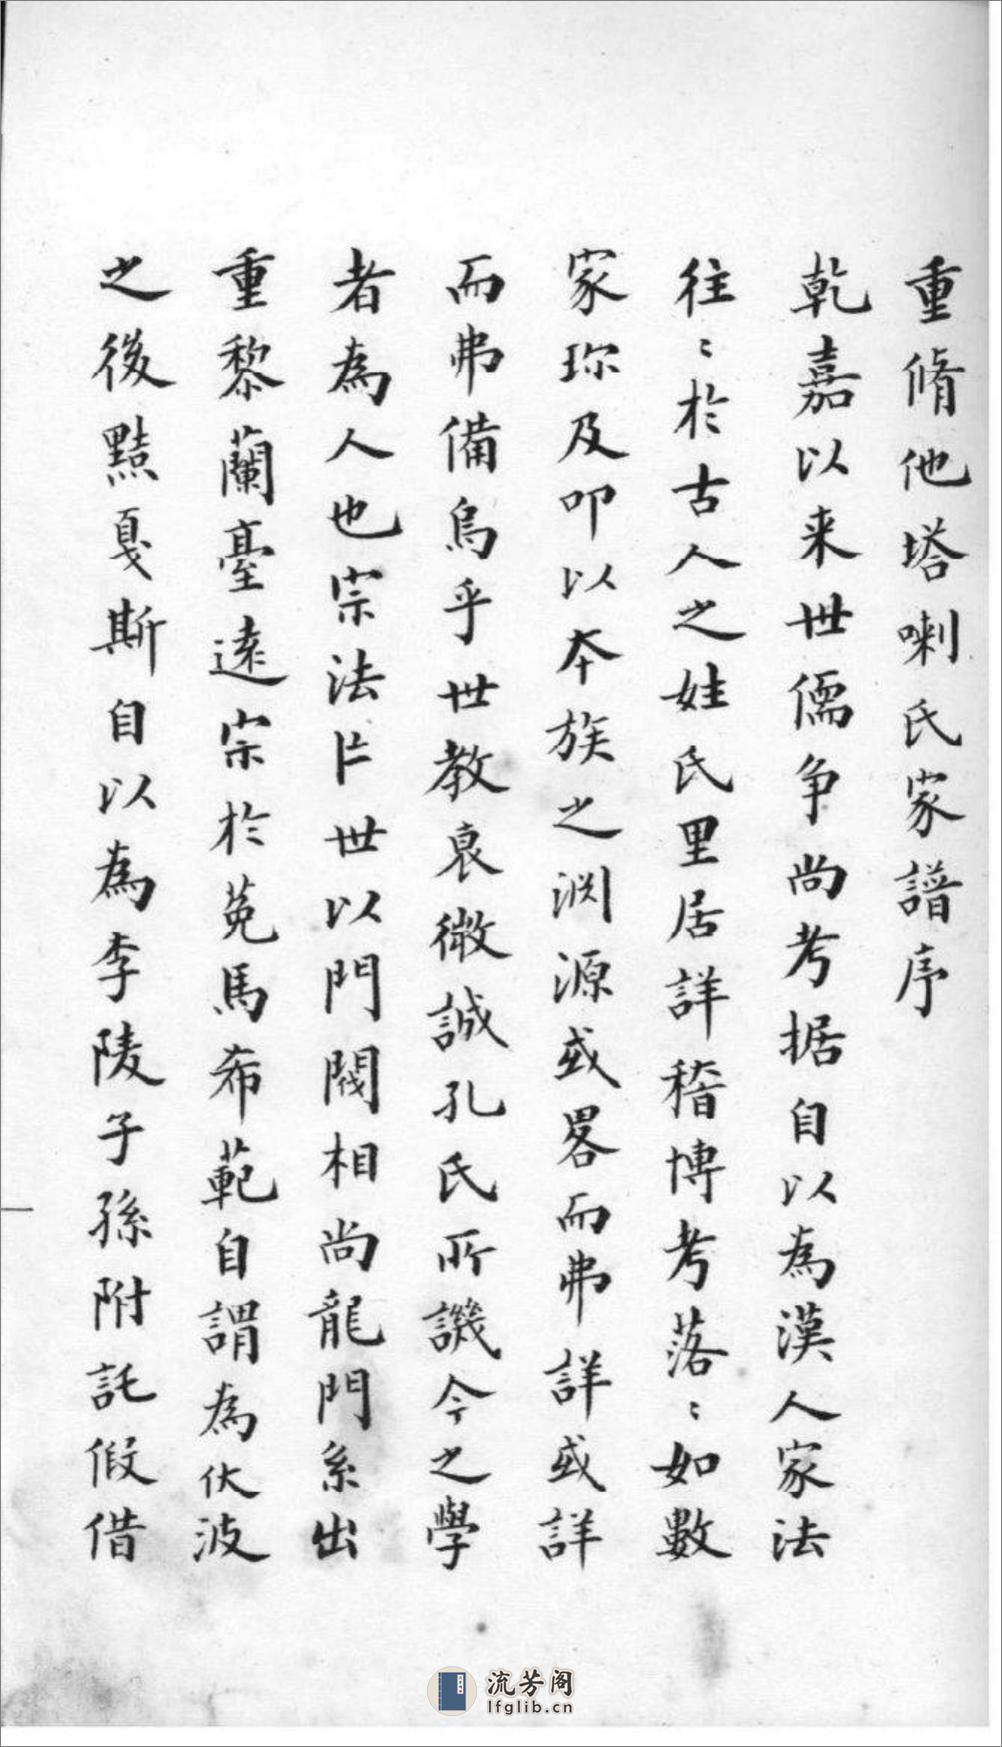 重脩他塔喇氏家譜序
乾嘉以来世儒争尚考据自以為漢人家法
往〻於古人之姓氏里居詳稽博考落〻如數
家珎及叩以本族之渊源或畧而弗詳或詳
而弗備烏乎世教衰微誠孔氏所譏今之學
者為人也宗法亡世以門閥相尚龍門系出
重黎蘭臺遠宗於菟馬希範自謂為伏波
之後黠戛斯自以為李陵子孫附託假借
流芳阁
lfglib.cn